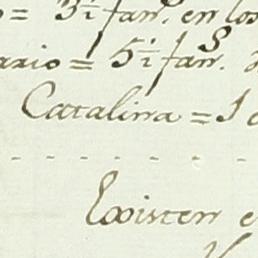 o = 3½ fan.s en los
ario = 5½ fan.s
Catalina = 1
Existen e